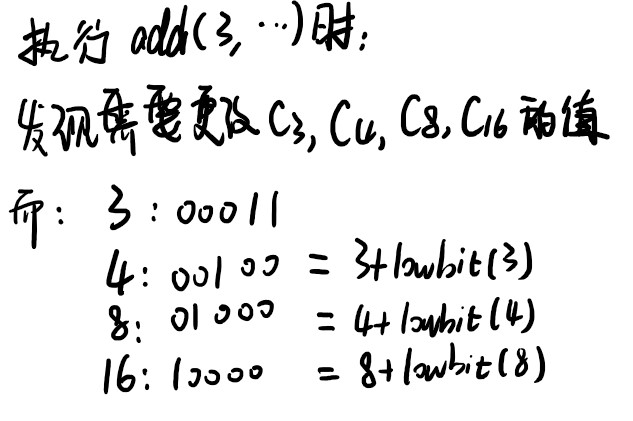 执行 add(3, …)时:
发现需要更改 C3, C4, C8, C16 的值
而: 3 : 00011
4: 00100 = 3+lowbit(3)
8: 01000 = 4+lowbit(4)
16: 10000 = 8+lowbit(8)